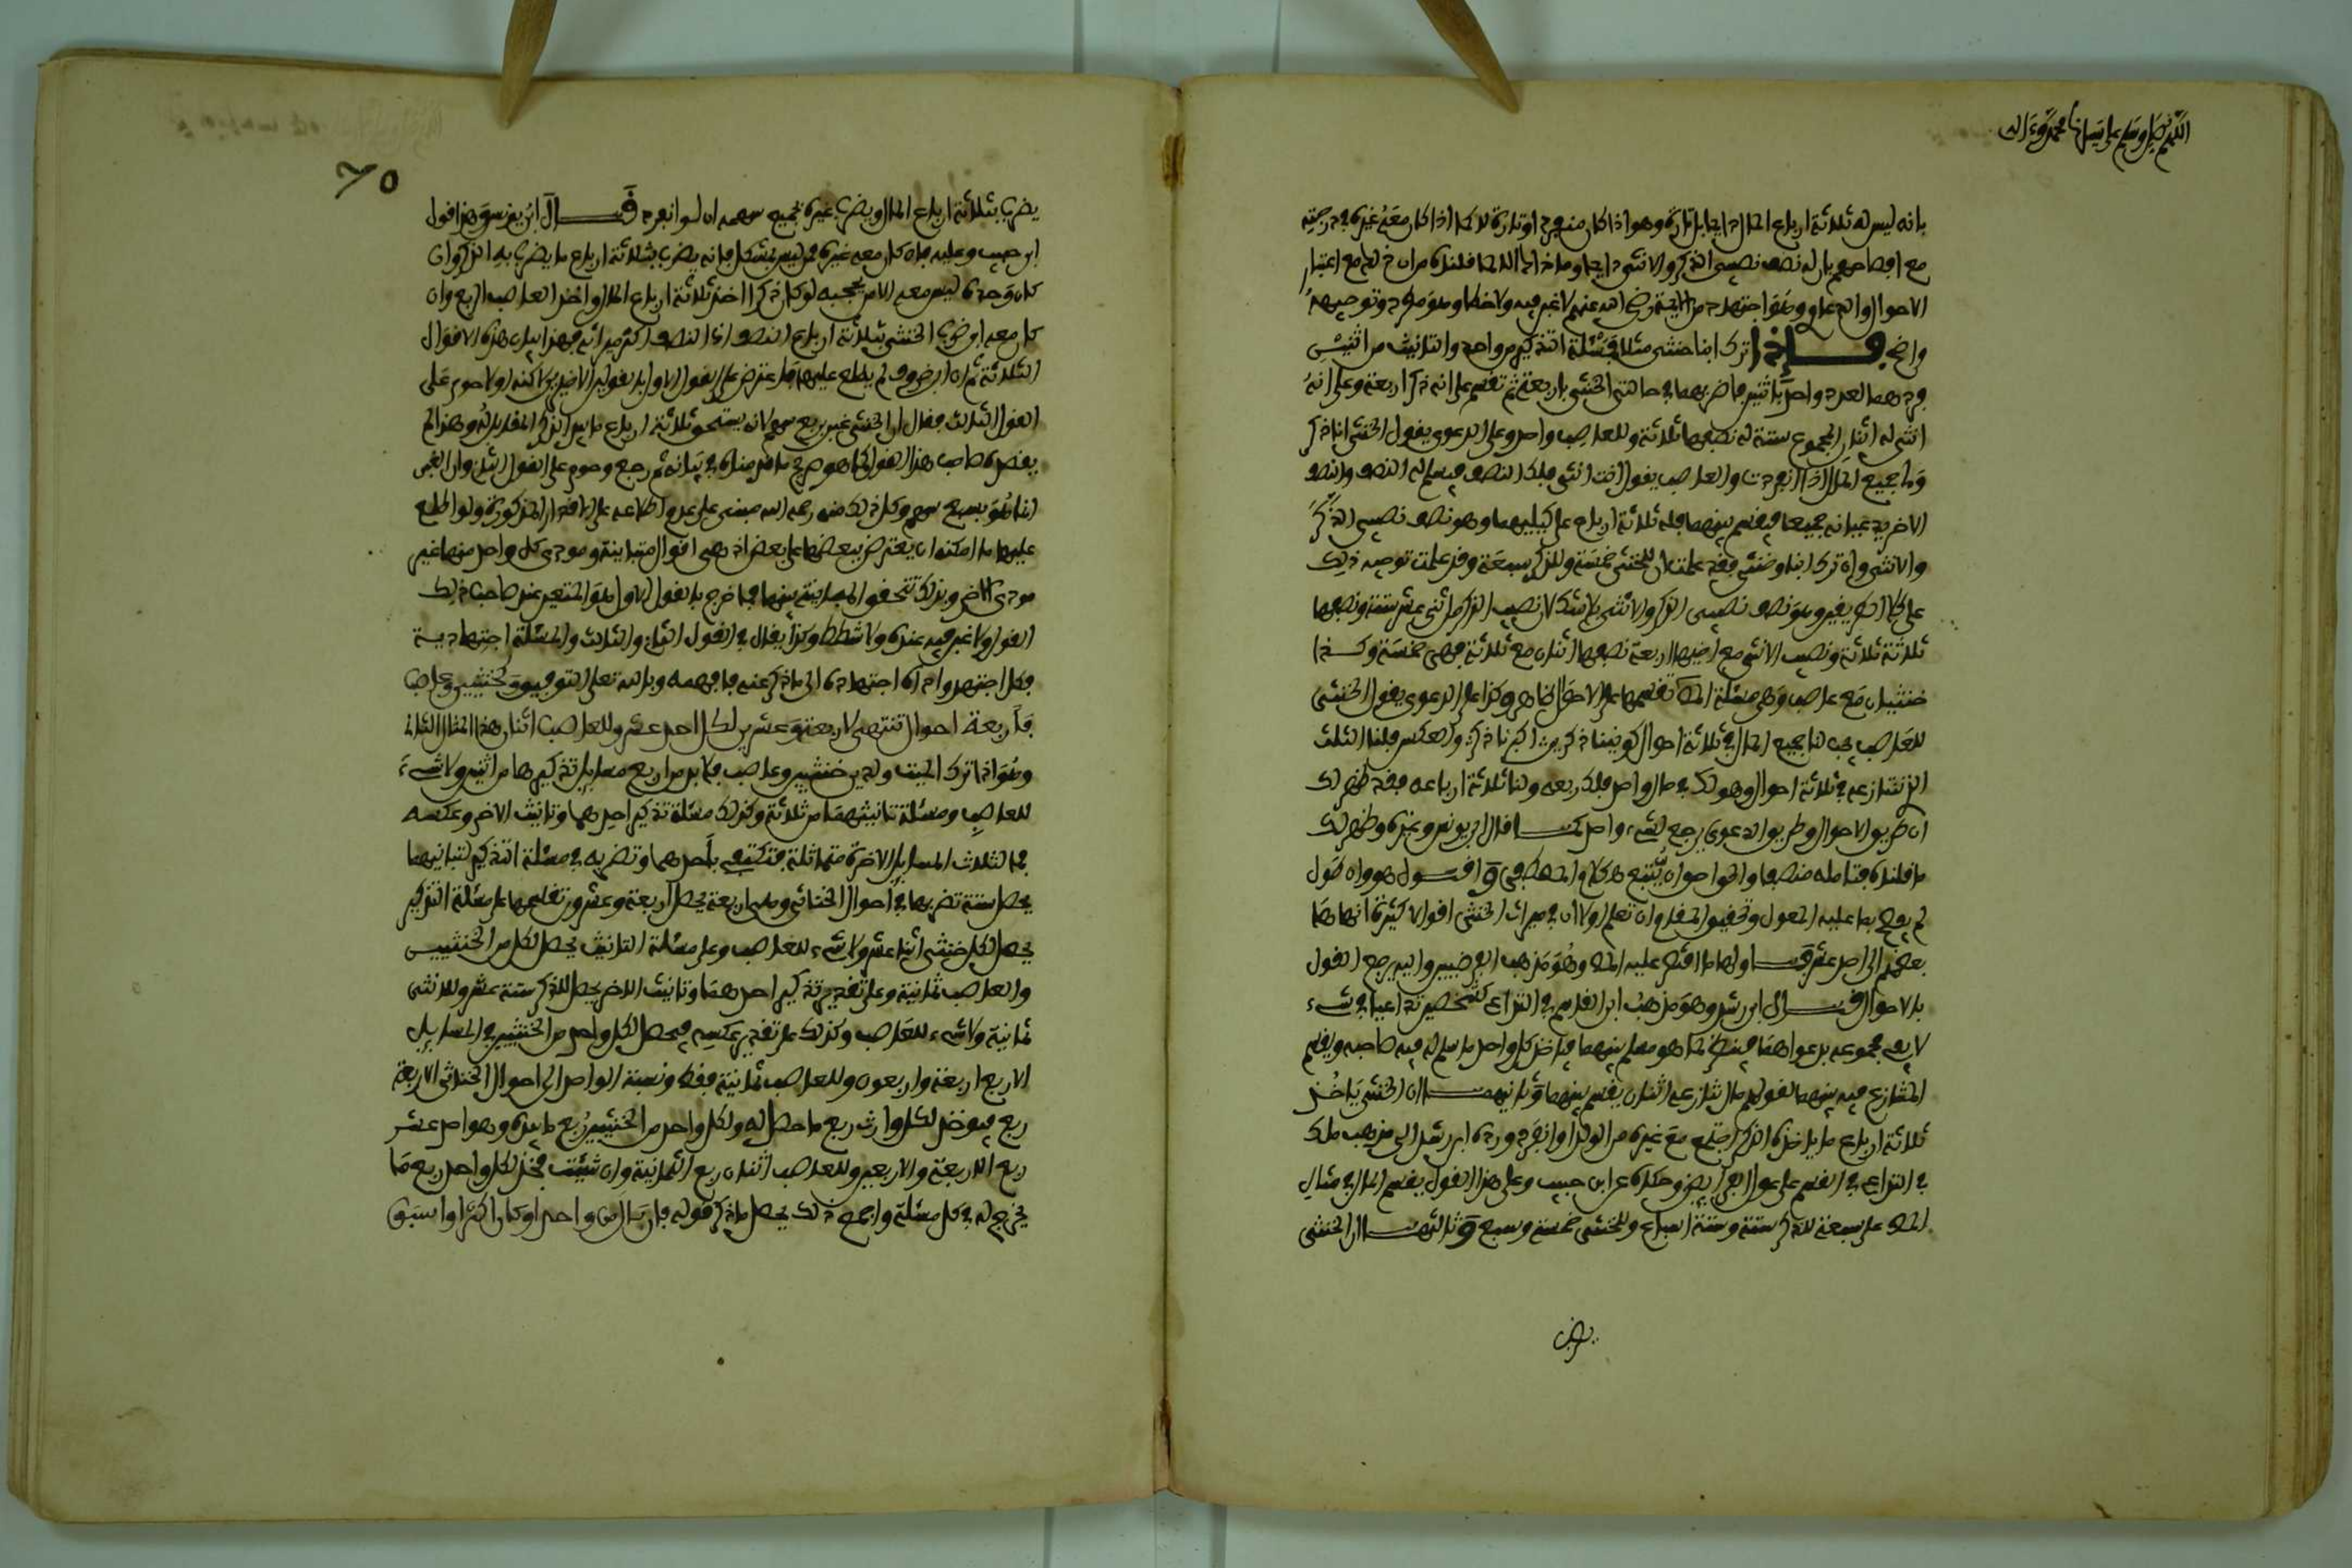 اللهم صل وسلم على سيدنا محمد وءاله
بانه ليس له ثلاثة ارباع المال دايما بل تارة وهو اذا كان منفردا وتارة لا كما اذا كان معه غيره في درجته
الاحوال والله اعلم وهو اجتهاد من الايمة رضي الله عنهم لا غبن فيه ولا خطا وهو مطرد وتوجيهه
واضح فاذا ترك ابنا خنثى مثلا فمسئلة التذكير من واحد والتانيث من اثنين
فردهما لعدد واحد باثنين فاضربهما في حالتي الخنثى باربعة ثم تقسم على انه ذكر اربعة وعلى انه
انثى له اثنان المجموع ستة له نصفها ثلاثة وللعاصب واحد وعلى الدعوى يقول الخنثى انا ذكر
ولي جميع المال اذا انفردت والعاصب يقول انت انثى فلك النصف فيسلم له النصف والنصف
الاخر يدعيانه جميعا فيقسم بينهما فله ثلاثة ارباع على كليهما وهو نصف نصيبي الذكر
والانثى وان ترك ابنا وخنثى فقد علمت ان للخنثى خمسة وللذكر سبعة وقد علمت توجيه ذلك
على كلا الطريقين وهو نصف نصيبي الذكر والانثى بلا شك لان نصيب الذكر من اثنى عشر ستة ونصفها
ثلاثة ثلاثة ونصيب الانثى مع اخيها اربعة نصفها اثنان مع ثلاثة فهي خمسة وكذا
خنثيان مع عاصب وهي مسئلة المص تقسيمها على الاحوال ظاهر وكذا على الدعوى يقول الخنثى
للعاصب يجب لنا جميع المال في ثلاثة احوال كوننا ذكرين اكبرنا ذكر والعكس فلنا الثلث
الذي تنازعه في ثلاثة احوال وهو لك في حال واحد فلك ربعه ولنا ثلاثة ارباعه فقد ظهر لك
ان طريق الاحوال وطريق الدعوى يرجع لشيء واحد كما قال ابن يونس وغيره وظهر لك
ما قلناه فتامله منصفا والحق احق ان يتبع
لم يعرج بما عليه المعول وتحقيق المقام ان تعلم اولا ان في ميراث الخنثى اقوالا كثيرة انهاها
بعضهم الى احد عشر قولا اولها ما اقتصر عليه المص وهو مذهب الفرضيين واليه يرجع القول
بالاحوال قال ابن رشد وهو مذهب ابن القاسم في التداعي كشخصين تداعيا في شيء
لا يفي مجموعه بدعواهما فينظر لما هو مسلم بينهما فياخذ كل واحد ما سلم له فيه صاحبه ويقسم
المتنازع فيه بينهما لقولهم مال تنازعه اثنان يقسم بينهما وثانيهما ان الخنثى ياخذ
ثلاثة ارباع ما ياخذه الذكر اجتمع مع غيره من الولد او انفرد ورده ابن رشد الى مذهب ملك
في التداعي في القسم على عول الفرايض وحكاه عن ابن حبيب وعلى هذا القول يقسم المال في مثال
المص على سبعة للذكر ستة وستة اسباع وللخنثى خمسة وسبع وثالثها ان الخنثى
يضرب
٦٥
يضرب بثلاثة ارباع المال ويضرب غيره بجميع سهمه ان لو انفرد قال ابن يونس وهذا قول
ابن حبيب وعليه فان كان معه غيره ممن ليس بمشكل فانه يضرب بثلاثة ارباع ما يضرب به الذكر وان
كان وحده ليس معه الا من يحجبه لو كان ذكرا اخذ ثلاثة ارباع المال واخذ العاصب الربع وان
الثلاثة ثم ان ابن خروف لم يطلع عليها فاعترض على القول الاول بالقولين الاخيرين لاكنه اولا حوم على
القول الثالث فقال ان الخنثى غبن بربع سهم لانه يستحق ثلاثة ارباع ما بيد الذكر المقابل له وهذا لم
يقصده صاحب هذا القول كما هو صريح ما قدمناه في بيانه ثم رجع وحوم على القول الثاني وان الغبن
انما هو بسبع سهم وكل ذلك منه رحمه الله مبني على عدم اطلاعه على الاقوال المذكورة ولو اطلع
عليها ما امكنه ان يعترض ببعضها على بعض اذ هي اقوال متباينة ومودى كل واحد منها غير
مودى الاخر وبذلك تتحقق المباينة بينها فما خرج بالقول الاول هو المتعين عند صاحب ذلك
القول ولا غبن فيه عنده ولا شطط وكذا يقال في القول الثاني والثالث والمسئلة اجتهادية
فكل اجتهد واداه اجتهاده الى ما ذكر عنه فافهمه وبالله تعلى التوفيق وكخنثيين وعاصب
فاربعة احوال تنتهي لاربعة وعشرين لكل احد عشر وللعاصب اثنان هذا المثال الثاني
وهو اذا ترك الميت ولدين خنثيين وعاصب فلا بد من اربع مسايل تذكيرهما من اثنين ولا شيء
للعاصب ومسئلة تانيثهما من ثلاثة وكذلك مسئلة تذكير احدهما وتانيث الاخر وعكسه
فالثلاث المسايل الاخرة متماثلة فتكتفي باحدهما وتضربه في مسئلة التذكير لتباينهما
يحصل ستة تضربها في احوال الخناثى وهي اربعة يحصل اربعة وعشرون تقسمها على مسئلة التذكير
يحصل لكل خنثى اثنا عشر ولا شيء للعاصب وعلى مسئلة التانيث يحصل لكل من الخنثيين
والعاصب ثمانية وعلى تقدير تذكير احدهما وتانيث الاخر يحصل للذكر ستة عشر وللانثى
ثمانية ولا شيء للعاصب وكذلك على تقدير عكسه فيحصل لكل واحد من الخنثيين في المسايل
الاربع اربعة واربعون وللعاصب ثمانية فقط ونسبة الواحد الى احوال الخناثى الاربعة
ربع فيوخذ لكل وارث ربع ما حصل له ولكل واحد من الخنثيين ربع ما بيده وهو احد عشر
ربع الاربعة والاربعين وللعاصب اثنان ربع الثمانية وان شئت فخذ لكل واحد ربع ما
يخرج له في كل مسئلة واجمع ذلك يحصل ما ذكر قوله فان بال من واحد او كان اكثر او اسبق